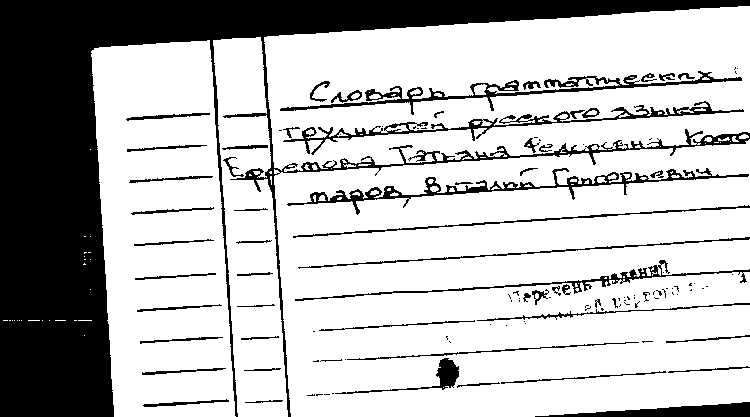 Словарь грамматических
трудностей русского языка
Ефремова, Татьяна Федоровна, Косто
маров, Виталий Григорьевич.
Перечень изданий